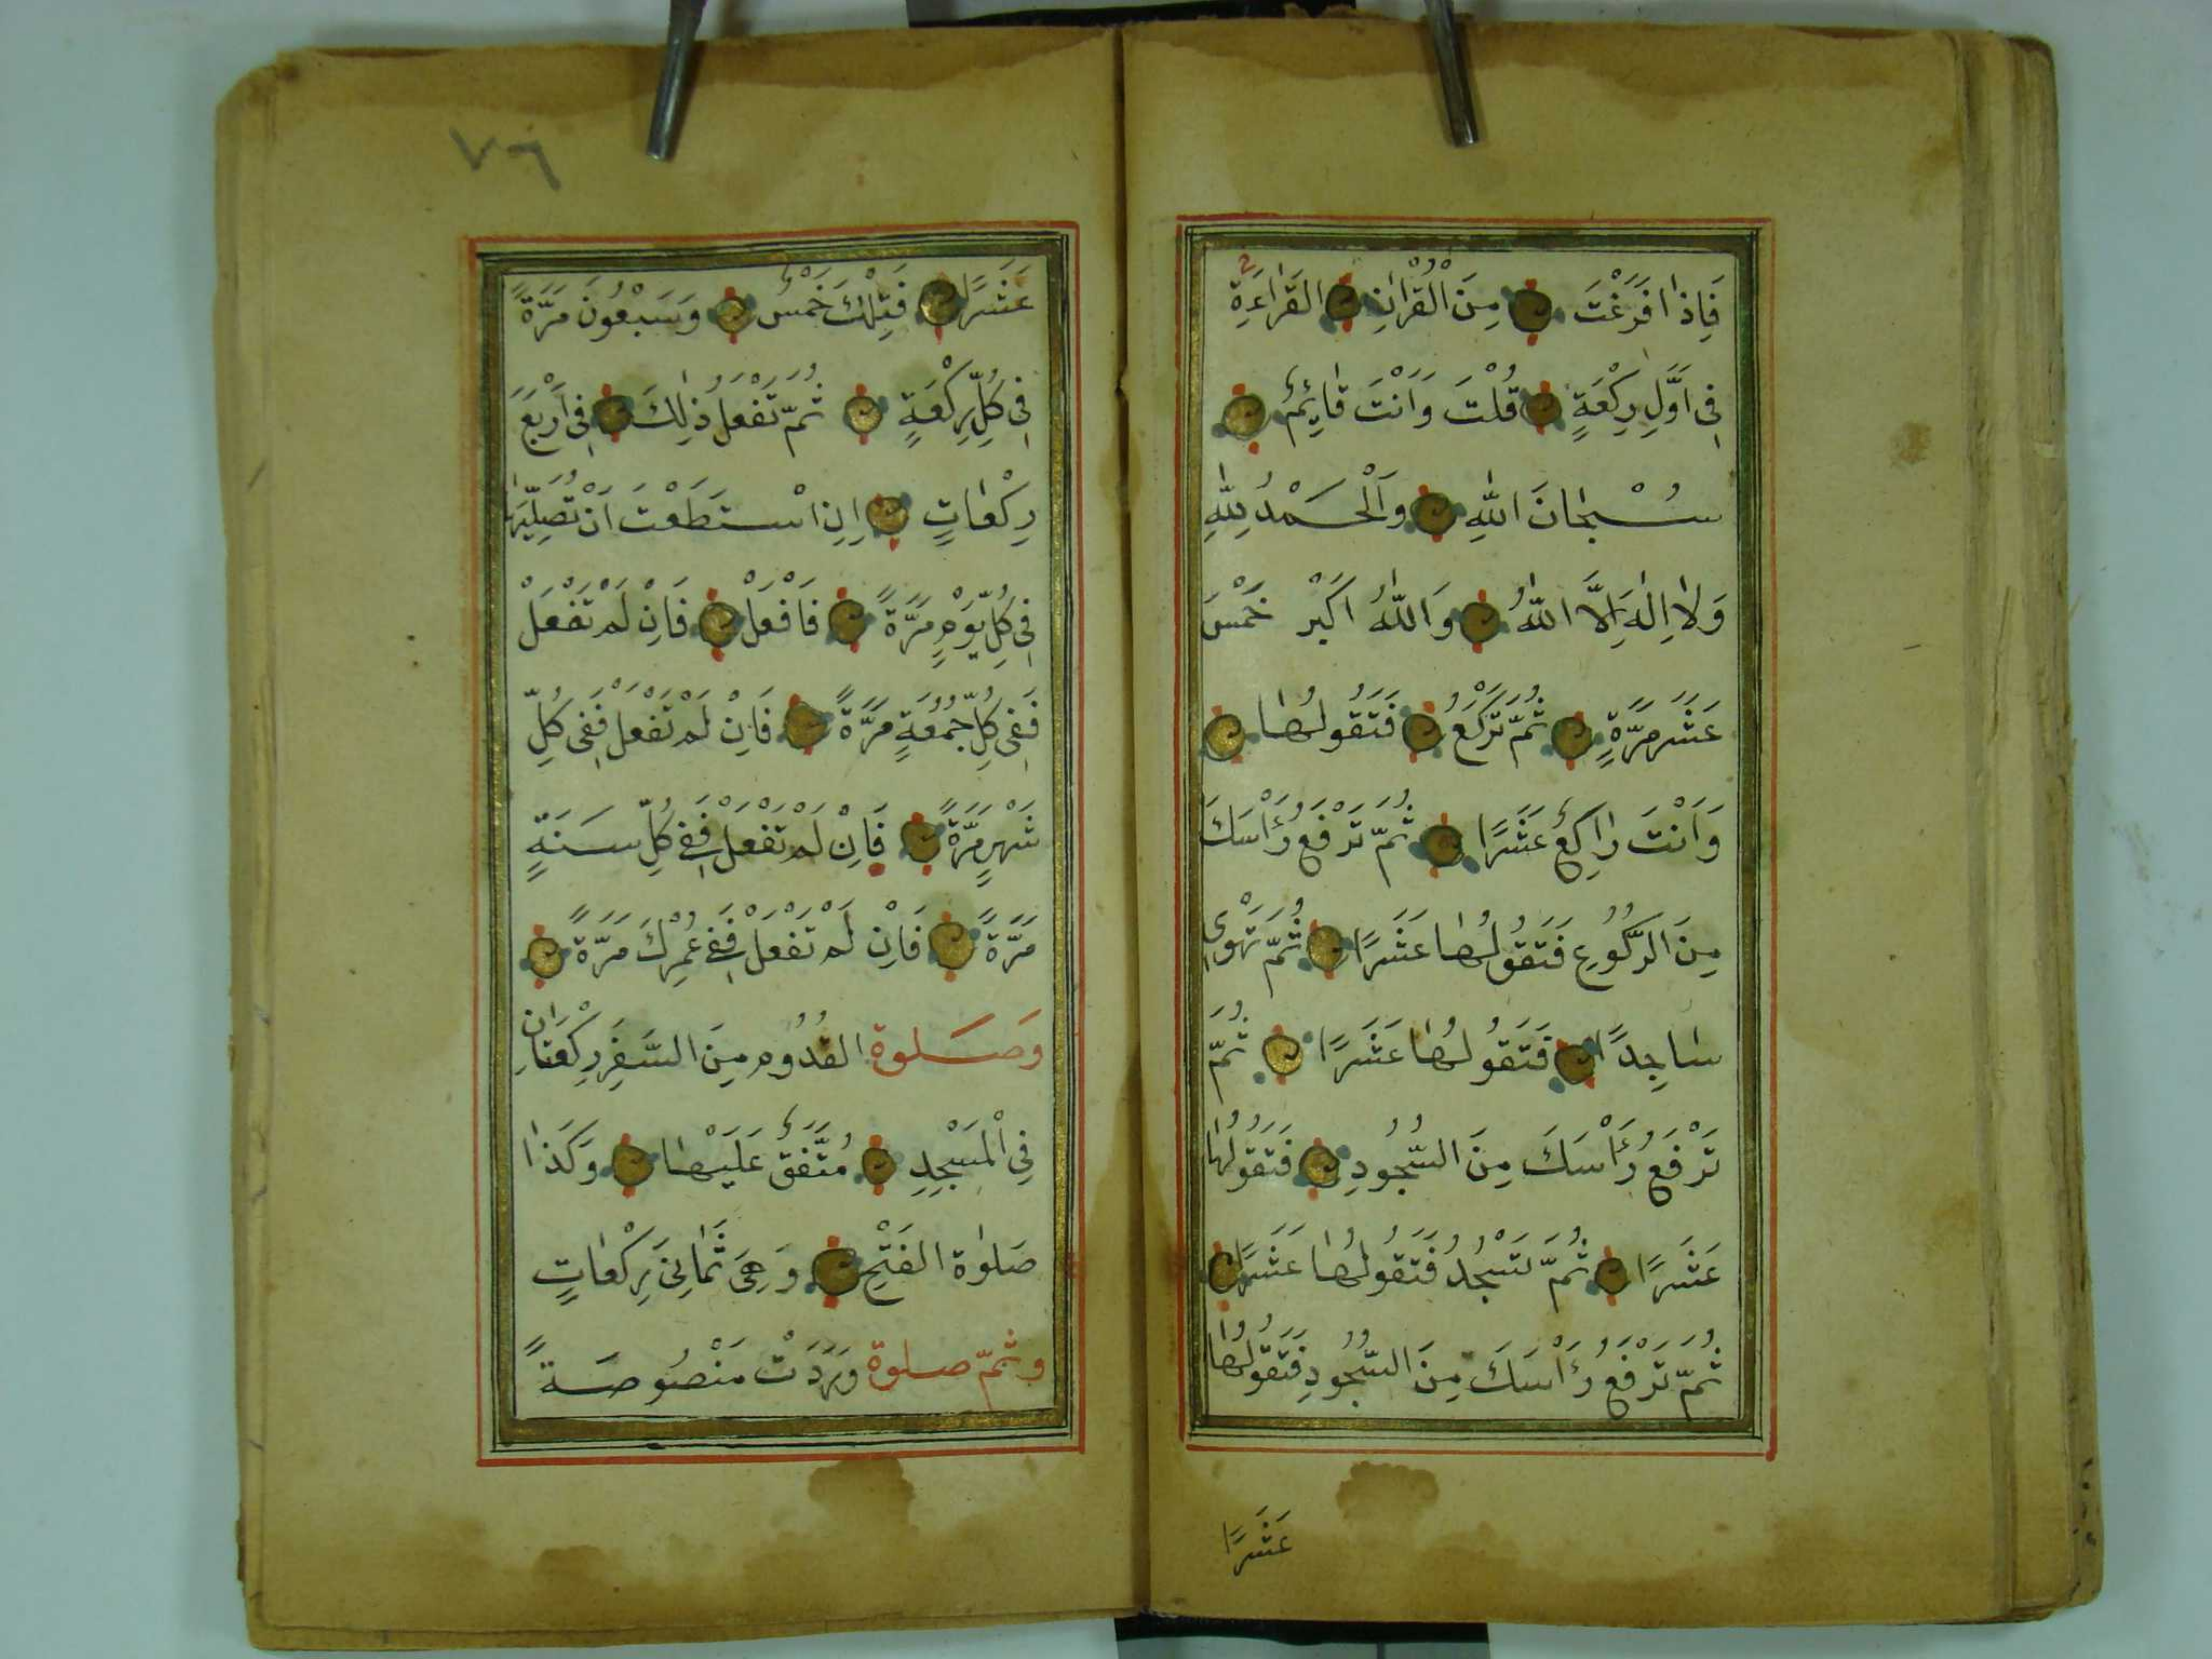 فَاِذَا فَرَغْتَ مِنَ الْقُرْاٰنِ الْقَرَاءَةِ
فِى اَوَّلِ رِكْعَةٍ قُلْتَ وَاَنْتَ قَائِمٌ
سُبْحَانَ اللّٰهِ وَالْحَمْدُ لِلّٰهِ
وَلَا اِلٰهَ اِلَّا اللّٰهُ وَاللّٰهُ اَكْبَر خَمْسَ
عَشَرَ مَرَّةٍ ثُمَّ تَرْكَعُ فَتَقُولُهَا
وَاَنْتَ رَاكِعٌ عَشَرًا ثُمَّ تَرْفَعُ رَأْسَكَ
مِنَ الرُّكُوعِ فَتَقُولُهَا عَشَرًا ثُمَّ تَهْوِى
سَاجِدًا فَتَقُولُهَا عَشَرًا ثُمَّ
تَرْفَعُ رَأْسَكَ مِنَ السُّجُودِ فَتَقُولُهَا
عَشَرًا ثُمَّ تَسْجُدُ فَتَقُولُهَا عَشَرًا
ثُمَّ تَرْفَعُ رَأْسَكَ مِنَ السُّجُودِ فَتَقُولُهَا
عَشَرًا
٧٦
عَشَرًا فَتِلْكَ خَمْسٌ وَسَبْعُونَ مَرَّةً
فِى كُلِّ رِكْعَةٍ ثُمَّ تَفْعَلُ ذٰلِكَ فِى اَرْبَعَ
رِكْعَاتٍ اِنِ اسْتَطَعْتَ اَنْ تُصَلِّيَهَا
فِى كُلِّ يَوْمٍ مَرَّةً فَافْعَلْ فَاِنْ لَمْ تَفْعَلْ
فَفِى كُلِّ جُمُعَةٍ مَرَّةً فَاِنْ لَمْ تَفْعَلْ فَفِى كُلِّ
شَهْرٍ مَرَّةً فَاِنْ لَمْ تَفْعَلْ فَفِى كُلِّ سَنَةٍ
مَرَّةً فَاِنْ لَمْ تَفْعَلْ فَفِى عُمْرِكَ مَرَّةً
وَصَلٰوة القُدُومِ مِنَ السَّفَرِ رِكْعَتَانِ
فِى الْمَسْجِدِ مُتَّفَقٌ عَلَيْهَا وَكَذَا
صَلٰوة الفَتْحِ وَهِىَ ثَمَانِىَ رِكْعَاتٍ
وثَمَّ صلوة وَرَدَتْ مَنْصُوصَةً